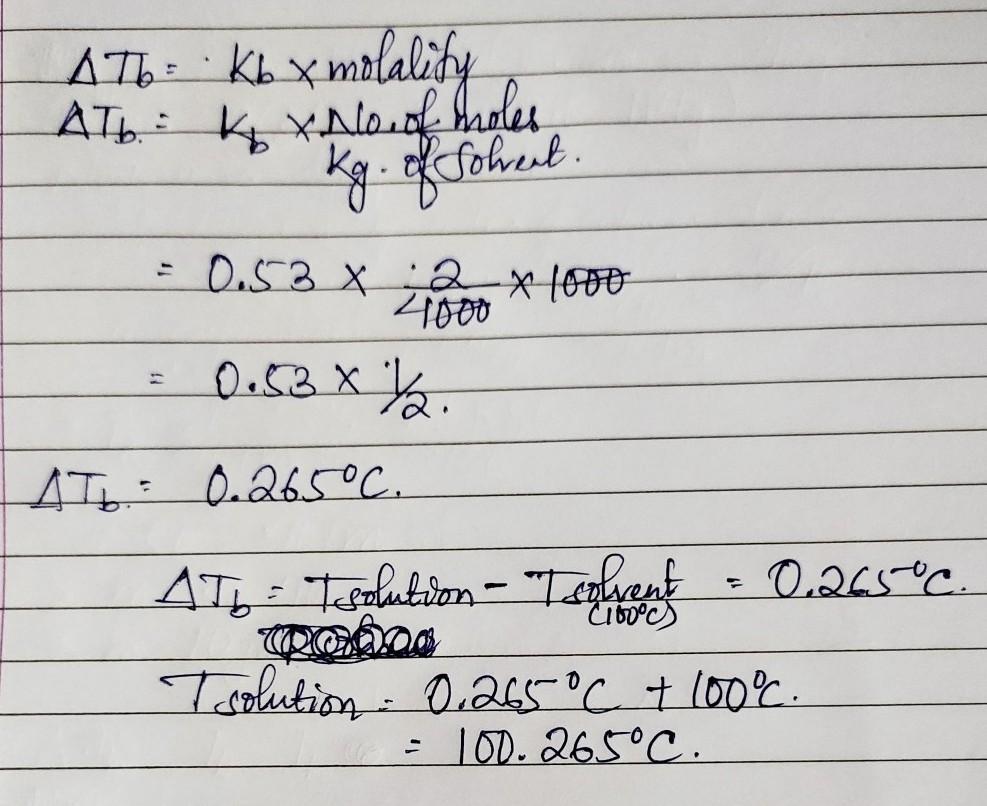 ΔTb = Kb × molality
ΔTb. = Kb × No. of moles
Kg. of Solvent.
= 0.53 × 2/4000 × 1000
= 0.53 × 1/2.
ΔTb. = 0.265°C.
ΔTb = Tsolution - Tsolvent = 0.265°C.
(100°C)
Tsolution = 0.265°C + 100°C.
= 100.265°C.